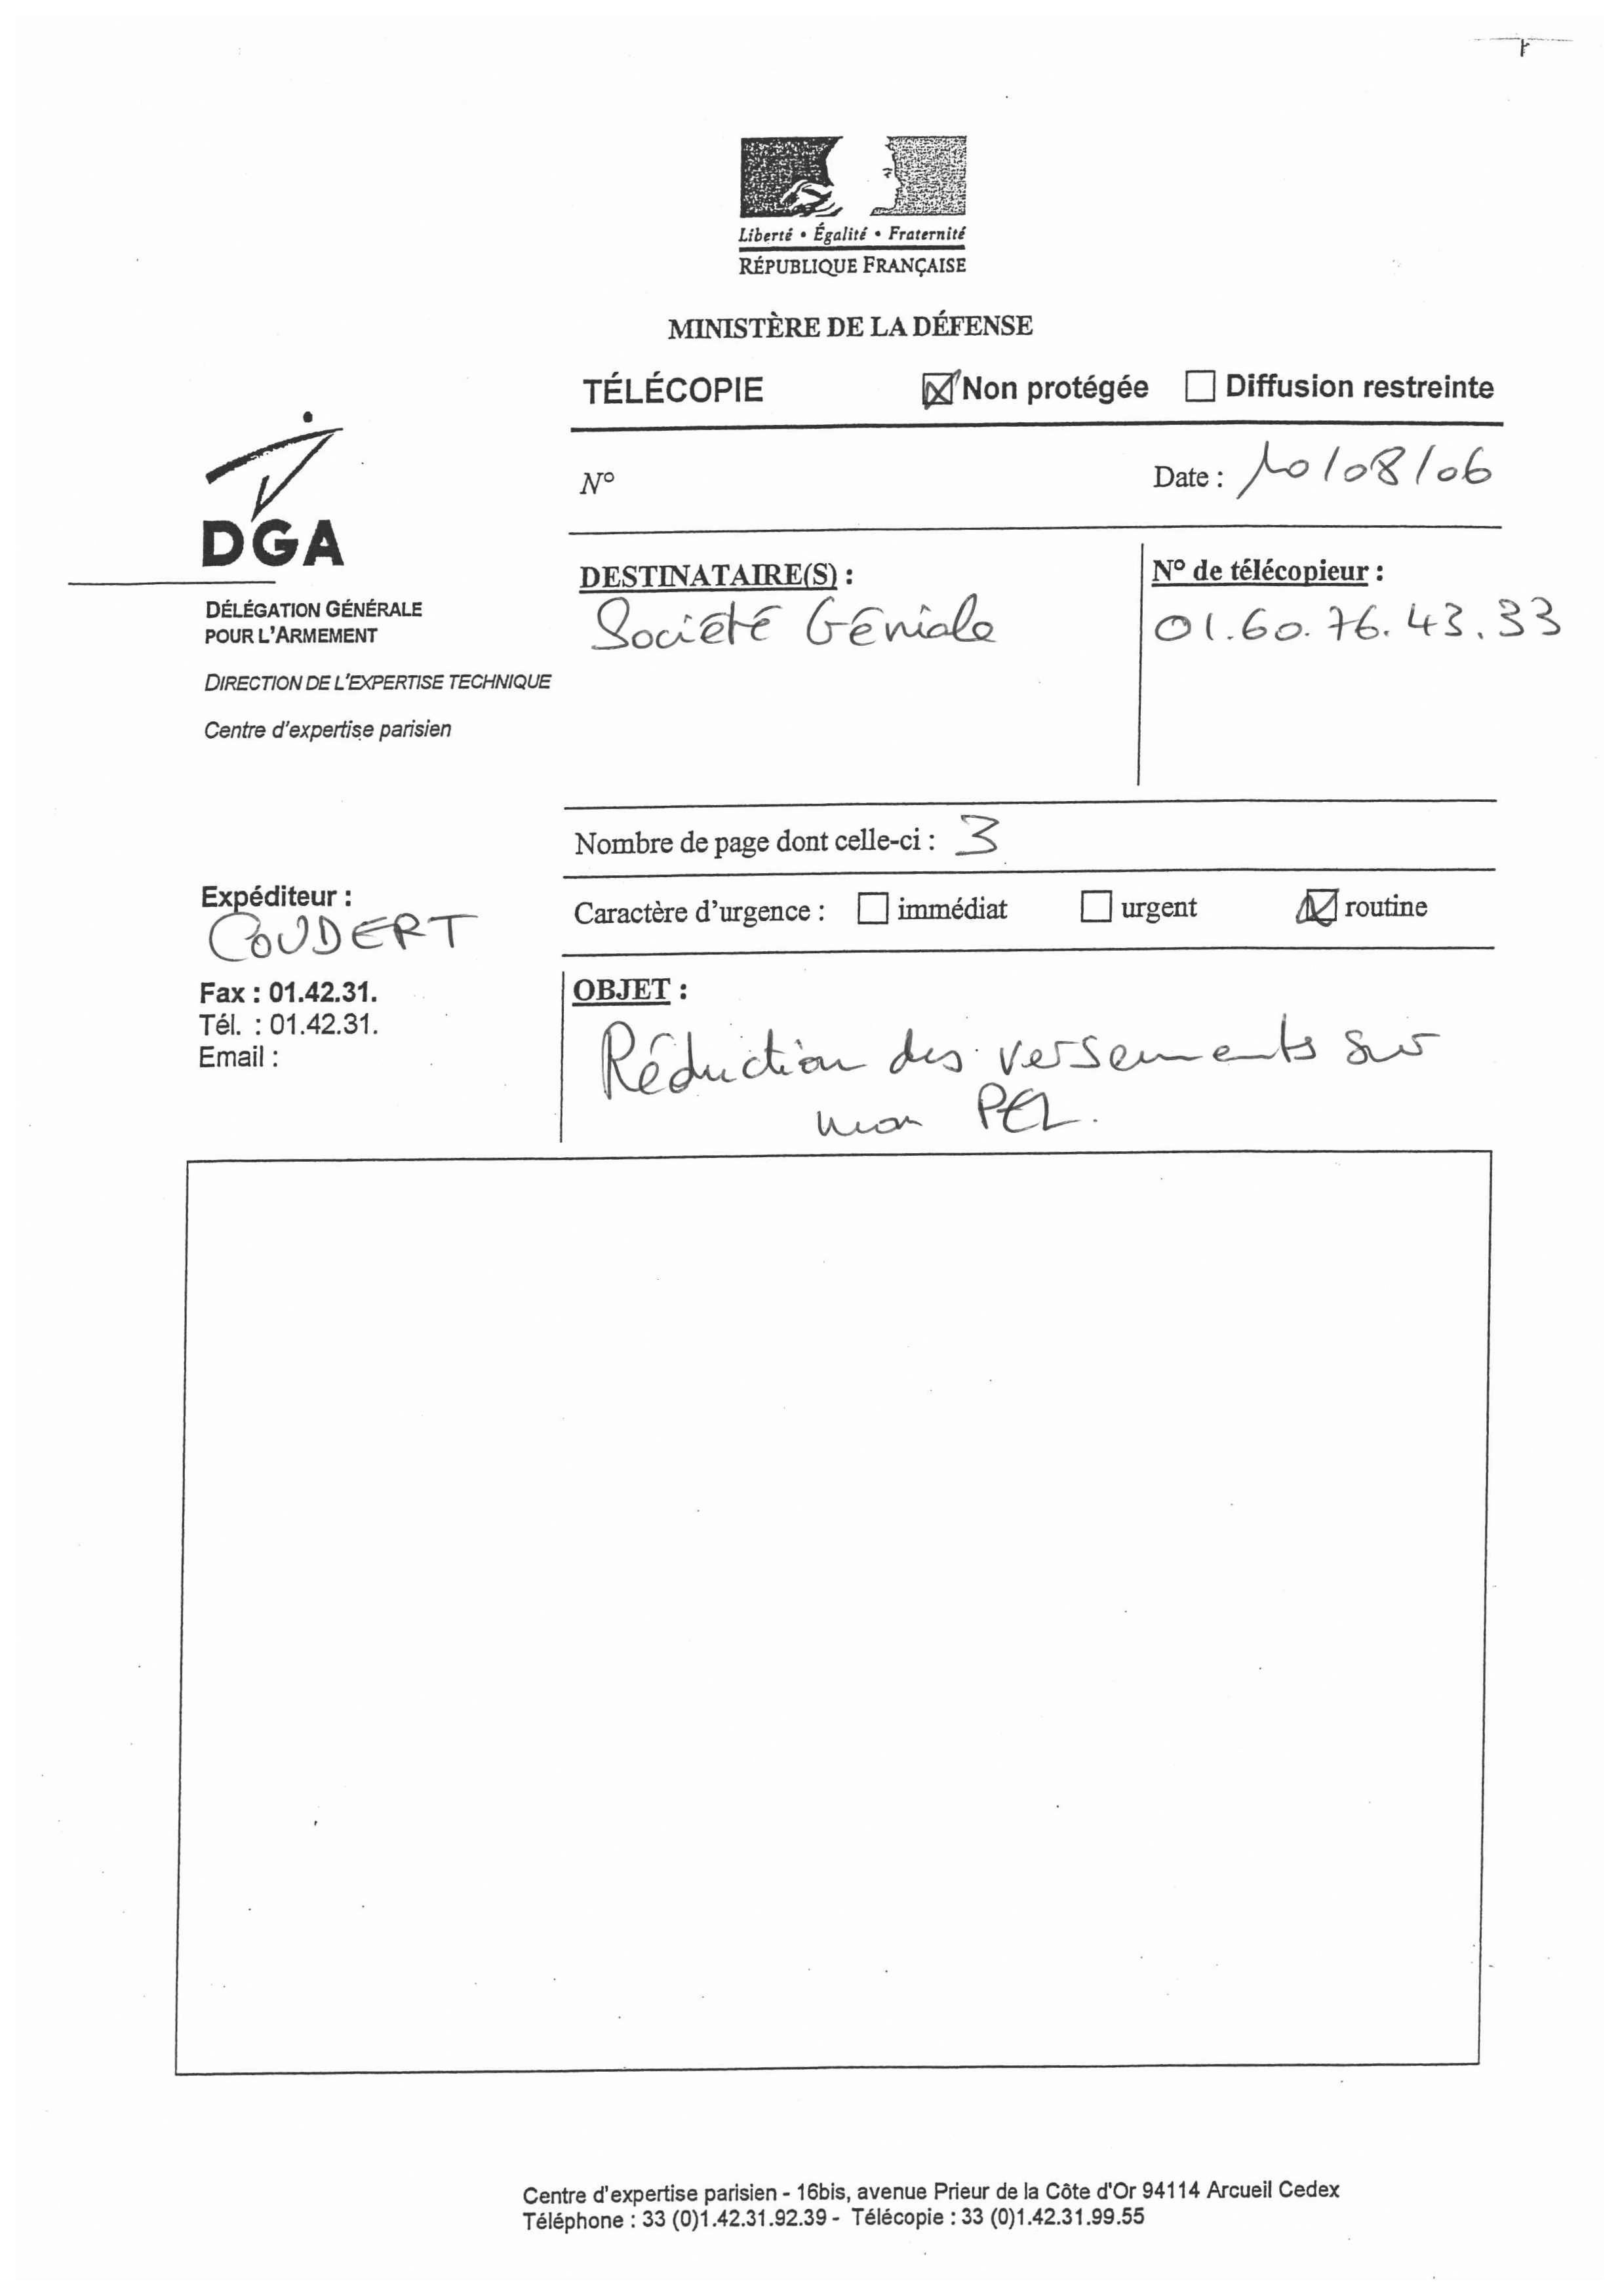 Liberté • Égalité • Fraternité
RÉPUBLIQUE FRANÇAISE
MINISTÈRE DE LA DÉFENSE
TÉLÉCOPIE Non protégée Diffusion restreinte
N° Date : 10/08/06
DGA
DÉLÉGATION GÉNÉRALE
POUR L'ARMEMENT
DIRECTION DE L'EXPERTISE TECHNIQUE
Centre d'expertise parisien
DESTINATAIRE(S) : N° de télécopieur :
Société Géniale 01.60.76.43.33
Nombre de page dont celle-ci : 3
Expéditeur :
COUDERT
Caractère d'urgence : immédiat urgent routine
Fax : 01.42.31.
Tél. : 01.42.31.
Email :
OBJET :
Réduction des versements sur
mon PEL.
Centre d'expertise parisien - 16bis, avenue Prieur de la Côte d'Or 94114 Arcueil Cedex
Téléphone : 33 (0)1.42.31.92.39 - Télécopie : 33 (0)1.42.31.99.55